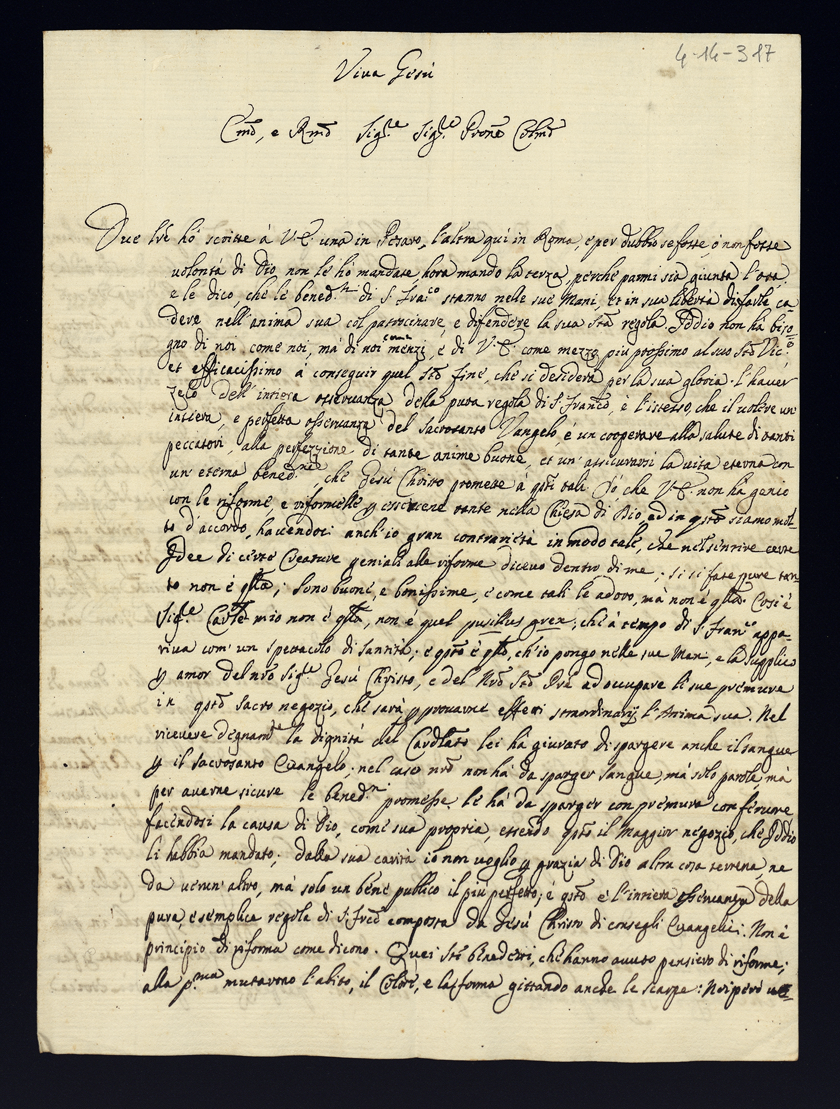 4-14-317
Viva Gesù
Emõ, e Rmõ Sig.re Sig.re Prone Colmõ
Due lrẽ hò scritte à V.E. una in Pesaro, l'altra quì in Roma, e per dubbio se fosse, ò non fosse
volontà di Dio, non le hò mandate, hora mando la terza, perche parmi sia giunta l'
e le dico, che le bened.ni di S. Fran.co stanno nelle sue Mani, et in sua libertà di farle ca-
dere nell'anima sua col patrocinare, e difendere la sua Stã regola. Iddio non hà biso-
gno di noi, come noi, mà di noi come mezzi, e di V.E. come mezzo più prossimo al suo Stõ Vic.º
et efficacissimo à conseguir quel Stõ fine, che si desidera per la sua gloria. L'haver
zelo dell'intiera osservanza della pura regola di S. Francõ, è l'istesso, che il volere un'
intiera, e perfetta osservanza del Sacrosanto Vangelo, è un cooperare alla salute di tanti
peccatori, alla perfezzione di tante anime buone, et un'assicurarsi la vita eterna con
un'eterna bened.ne, che Gesù Christo promette à qsti tali. Sò che V.E. non hà genio
con le riforme, e riformelle tante nella Chiesa di Dio, ed in qstõ siamo mol-
to d'accordo, havendoci anch'io gran contrarietà in modo tale, che nel sentire certe
Idee di certe Creature geniali alle riforme dicevo dentro di me; si si fate pure tan-
to non è qlla; sono buone, e bonissime, e come tali le adoro, mà non è qlla. Così è
Sig.re Cardle mio non è qlla, non è quel pusillus grex, che à tempo di S. Fran.co appa-
riva com'un spettacolo di santità; e qstõ è qllo, ch'io pongo nelle sue Mani, e la supplico
p amor del nrõ Sig.re Gesù Christo, e del Nrõ Stõ Prẽ ad occupare le sue premure
in qstõ Sacro negozio, che sarà p provarne effetti straordinarij l'Anima sua. Nel
ricevere degnam.te la dignità del Cardlato lei hà giurato di spargere anche il sangue
p il sacrosanto Evangelo; nel caso nrõ non hà da sparger sangue, mà solo parole mà
per averne sicure le bened.ni promesse le hà da sparger con premura con fervore
facendosi la causa di Dio, come sua propria, essendo qstõ il maggior negozio, che Iddio
li habbia mandato; dalla sua carità io non voglio p grazia di Dio altra cosa terrena, ne
da verun'altro, mà solo un bene publico il più perfetto; e qstõ è l'intiera osservanza della
pura, e semplice regola di S. Frcõ composta da Gesù Christo di consegli Evangelici. Non è
principio di riforma come dicono. Quei Sti benedetti, che hanno avuto pensiero di riforme;
alla p.ma mutarono l'abito, il Colore, e la forma gittando anche le scarpe: Noi però